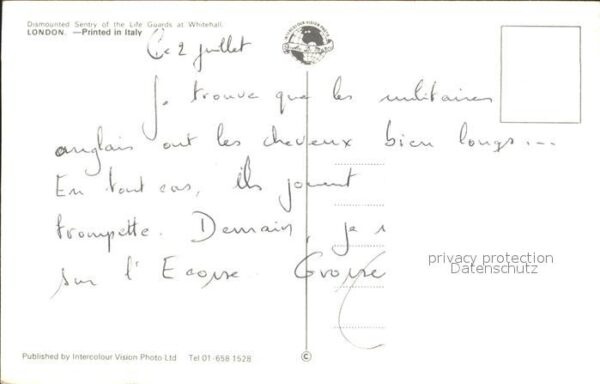 Dismounted Sentry of the Life Guards at Whitehall.
LONDON. —Printed in Italy
Ce 2 juillet
Je trouve que les militaires
anglais ont les cheveux bien longs...
En tout cas, ils jouent
trompette. Demain, je
sur l'Ecosse.
privacy protection
Datenschutz
Published by Intercolour Vision Photo Ltd Tel 01-658 1528 ©